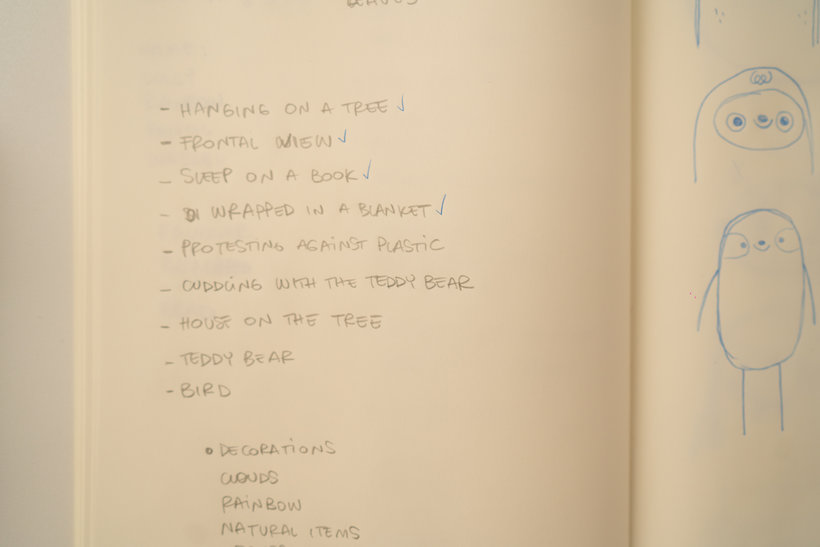 - HANGING ON A TREE ✓
- FRONTAL VIEW ✓
- SLEEP ON A BOOK ✓
- WRAPPED IN A BLANKET ✓
- PROTESTING AGAINST PLASTIC
- CUDDLING WITH THE TEDDY BEAR
- HOUSE ON THE TREE
- TEDDY BEAR
- BIRD
• DECORATIONS
CLOUDS
RAINBOW
NATURAL ITEMS